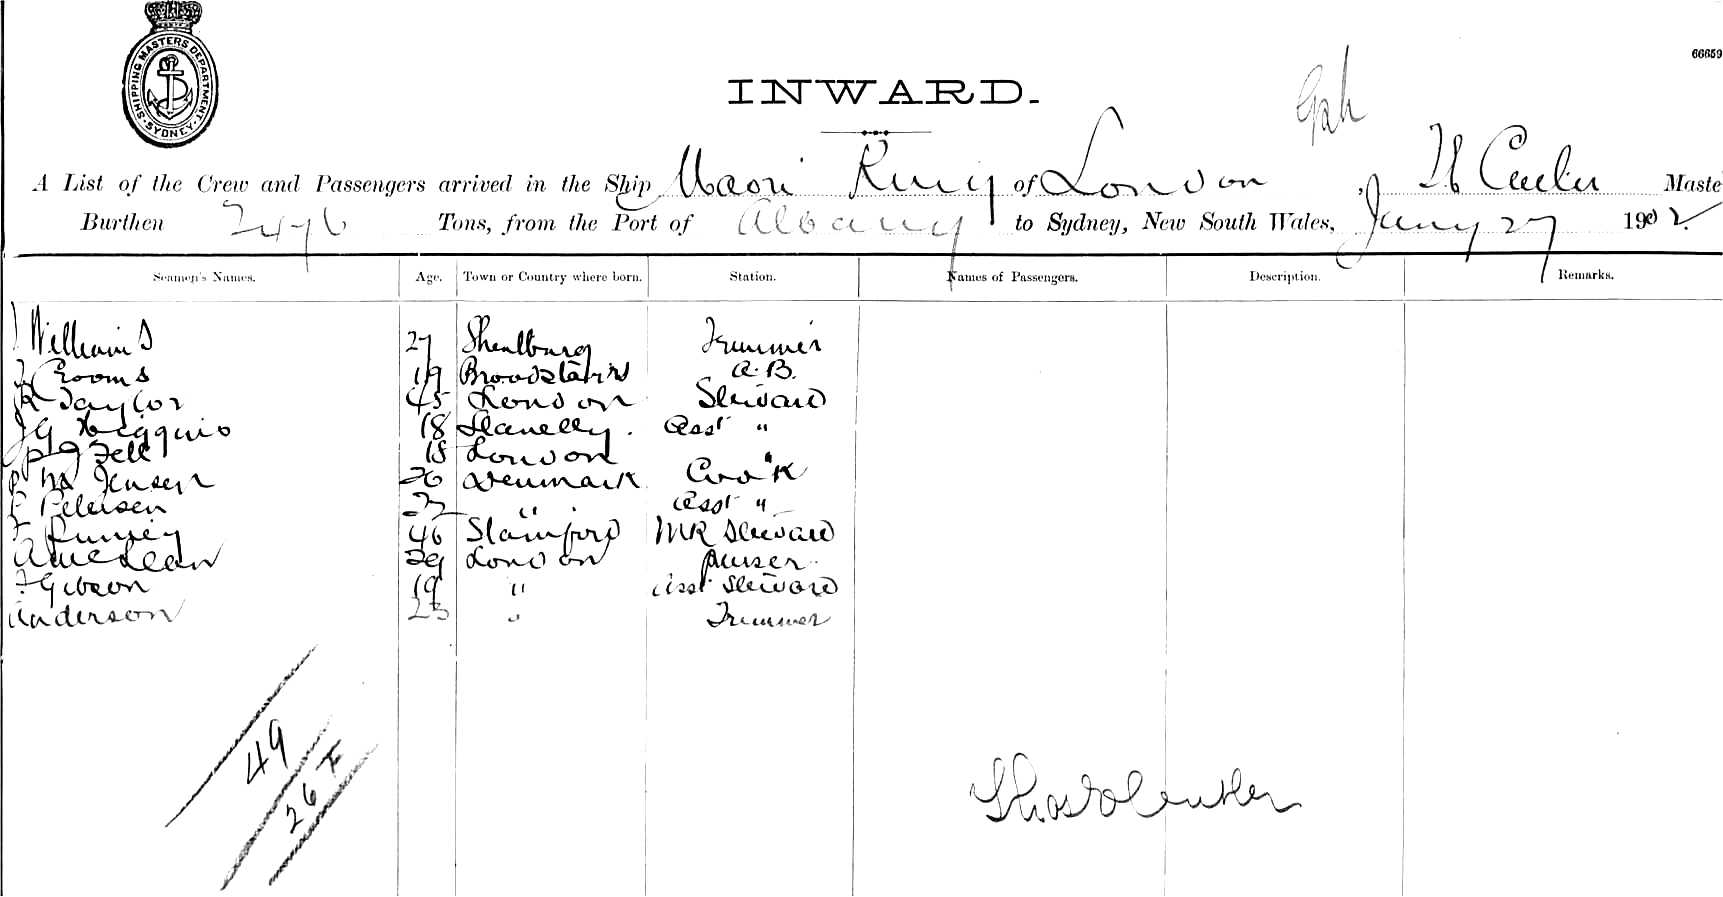 SHIPPING MASTERS DEPARTMENT. SYDNEY.
66659
INWARD.
A List of the Crew and Passengers arrived in the Ship Maori King of London, Maste
Burthen 2476 Tons, from the Port of Albany to Sydney, New South Wales, Jany 27 1902.
Seamen's Names. Age. Town or Country where born. Station. Names of Passengers. Description. Remarks.
Williams 27 Trimmer
Crooms 19 Broadstairs A.B.
R Taylor 45 London Steward
J G Higgins 18 Llanelly. Asst "
Fell 18 London "
Jensen 26 Denmark Cook
Petersen 22 " Asst "
46 Stamford Steward
A McLean 29 London Purser
F Gibson 19 " Asst Steward
Anderson 23 " Trimmer
49
26 F